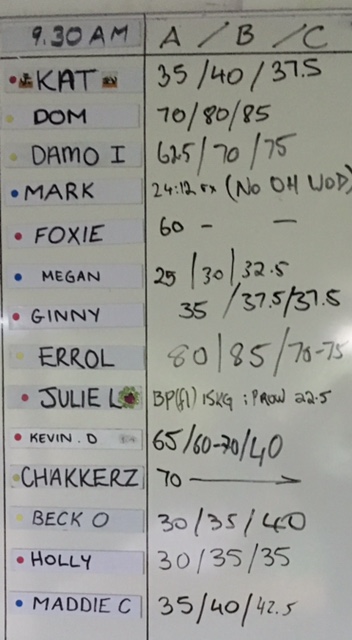 9.30 AM A / B / C
KAT 35/40/37.5
DOM 70/80/85
DAMO I 62.5/70/75
MARK 24:12 rx (No OH WOD)
FOXIE 60 - —
MEGAN 25/30/32.5
GINNY 35/37.5/37.5
ERROL 80/85/70-75
JULIE L BP(fl) 15KG : PROW 22.5
KEVIN.D 65/60-70/40
CHAKKERZ 70 →
BECK O 30/35/40
HOLLY 30/35/35
MADDIE C 35/40/42.5